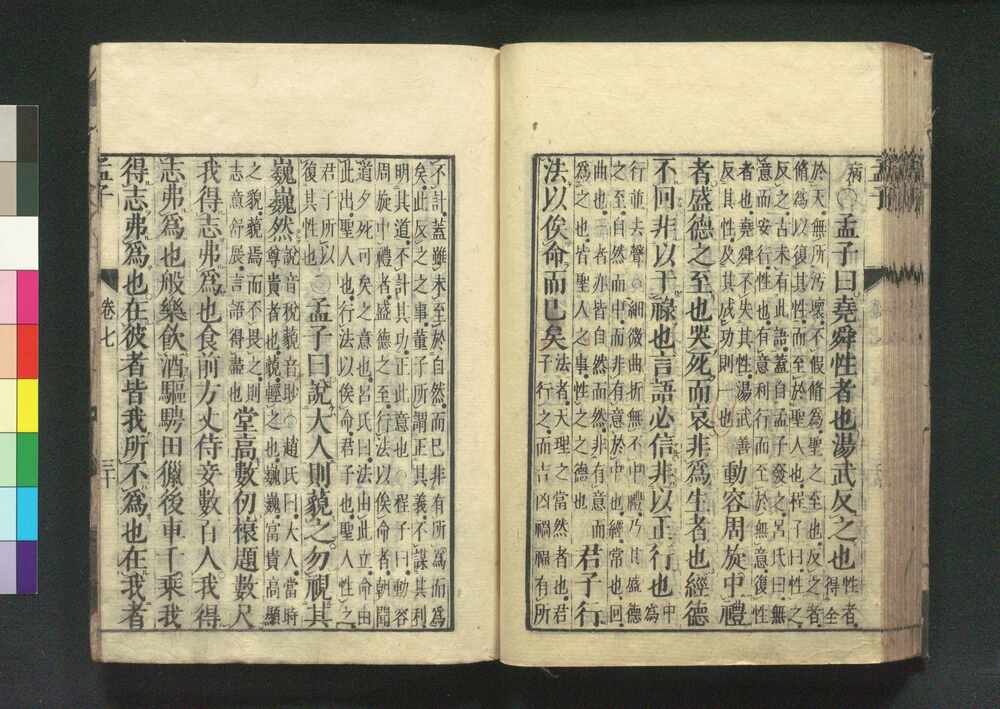 病○孟子曰堯舜性者也湯武反之也性者得全
於天無所汚壞不假脩為聖之至也反之者
脩為以復其性而至於聖人也程子曰性之
反之古未有此語蓋自孟子發之呂氏曰無
意而安行性也有意利行而至於無意復性
者也堯舜不失其性湯武善
反其性及其成功則一也
動容周旋中禮
者盛德之至也哭死而哀非爲生者也經德
不回非以干祿也言語必信非以正行也中為
行並去聲○細微曲折無不中禮乃其盛德
之至自然而中而非有意於中也經常也回
曲也三者亦皆自然而然非有意而
為之也皆聖人之事性之之德也
君子行
法以俟命而已矣法者天理之當然者也君
子行之而吉凶禍福有所
不計蓋雖未至於自然而已非有所為而為
矣此反之之事董子所謂正其義不謀其利
明其道不計其功正此意也○程子曰動容
周旋中禮者盛德之至行法以俟命者朝聞
道夕死可矣之意也呂氏曰法由此立命由
此出聖人也行法以俟命君子也聖人性之
君子所以
復其性也
○孟子曰說大人則藐之勿視其
巍巍然說音稅藐音眇○趙氏曰大人當時
尊貴者也藐輕之也巍巍富貴高顯
之貌藐焉而不畏之則
志意舒展言語得盡也
堂高數仞榱題數尺
我得志弗爲也食前方丈侍妾數百人我得
志弗爲也般樂飲酒驅騁田獵後車千乘我
得志弗爲也在彼者皆我所不爲也在我者
孟子
卷七
三十